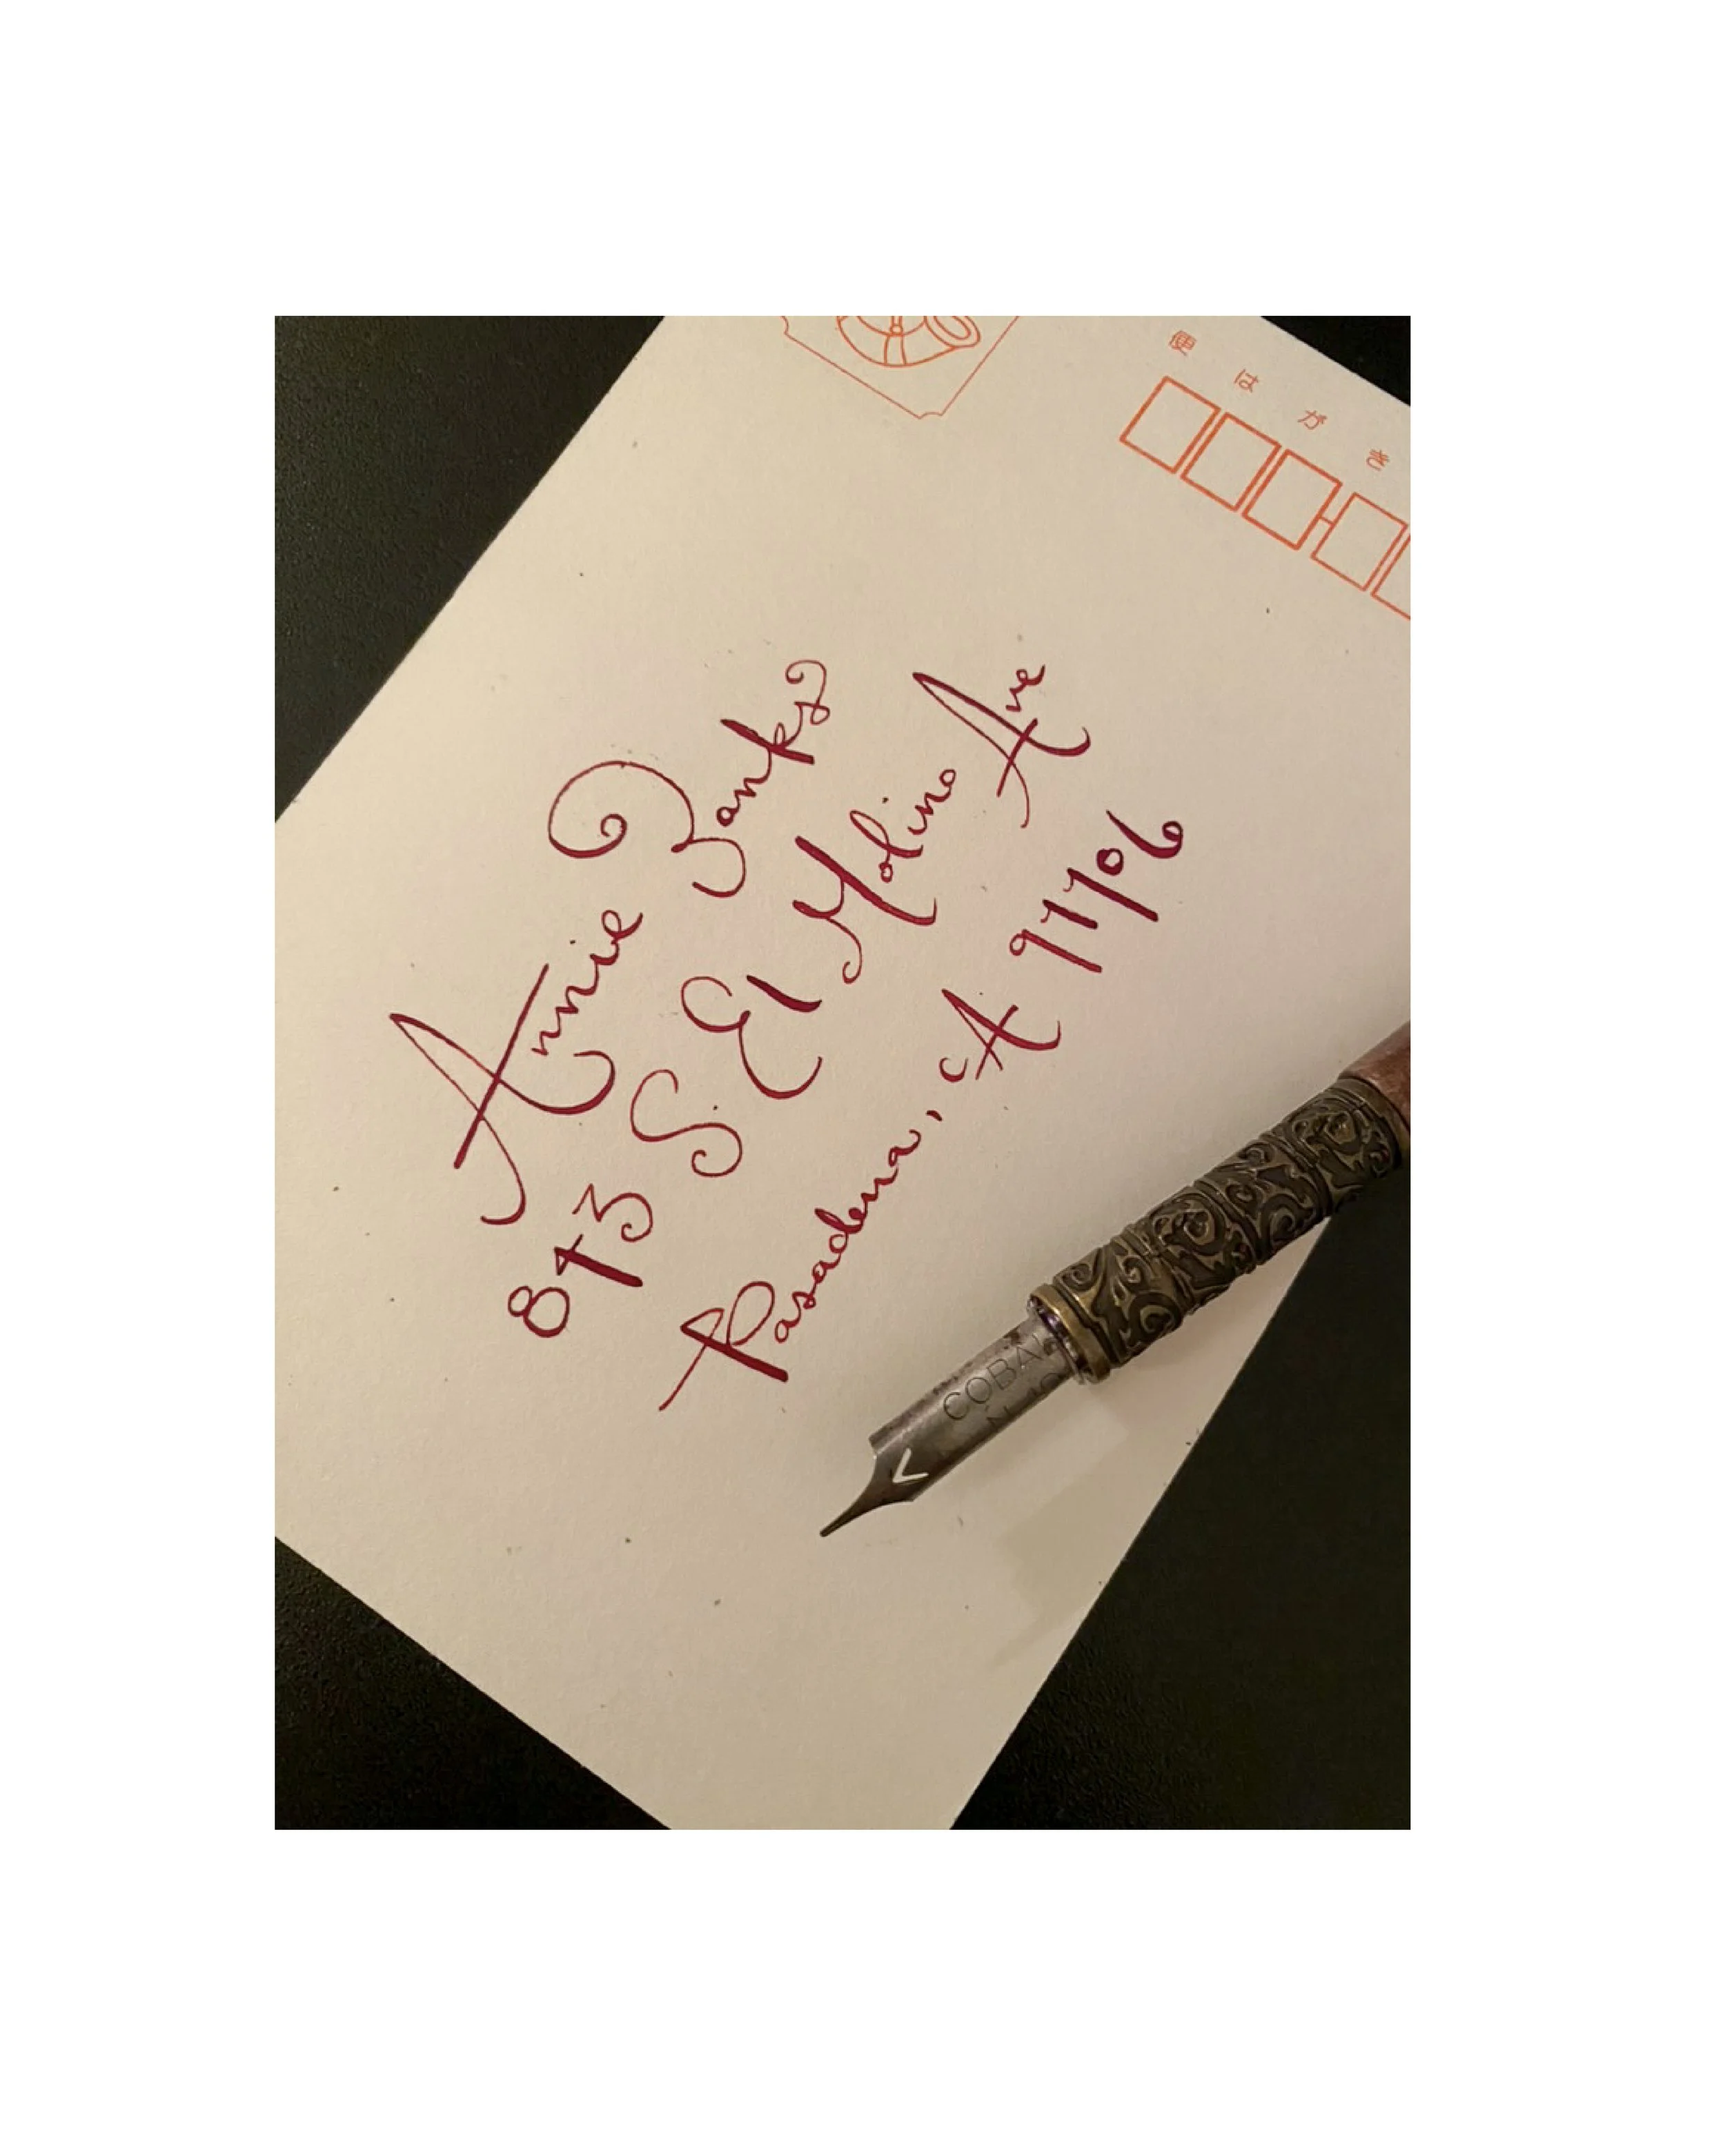 便はがき
Annie Banks
873 S. El Molino Ave
Pasadena, CA 91106